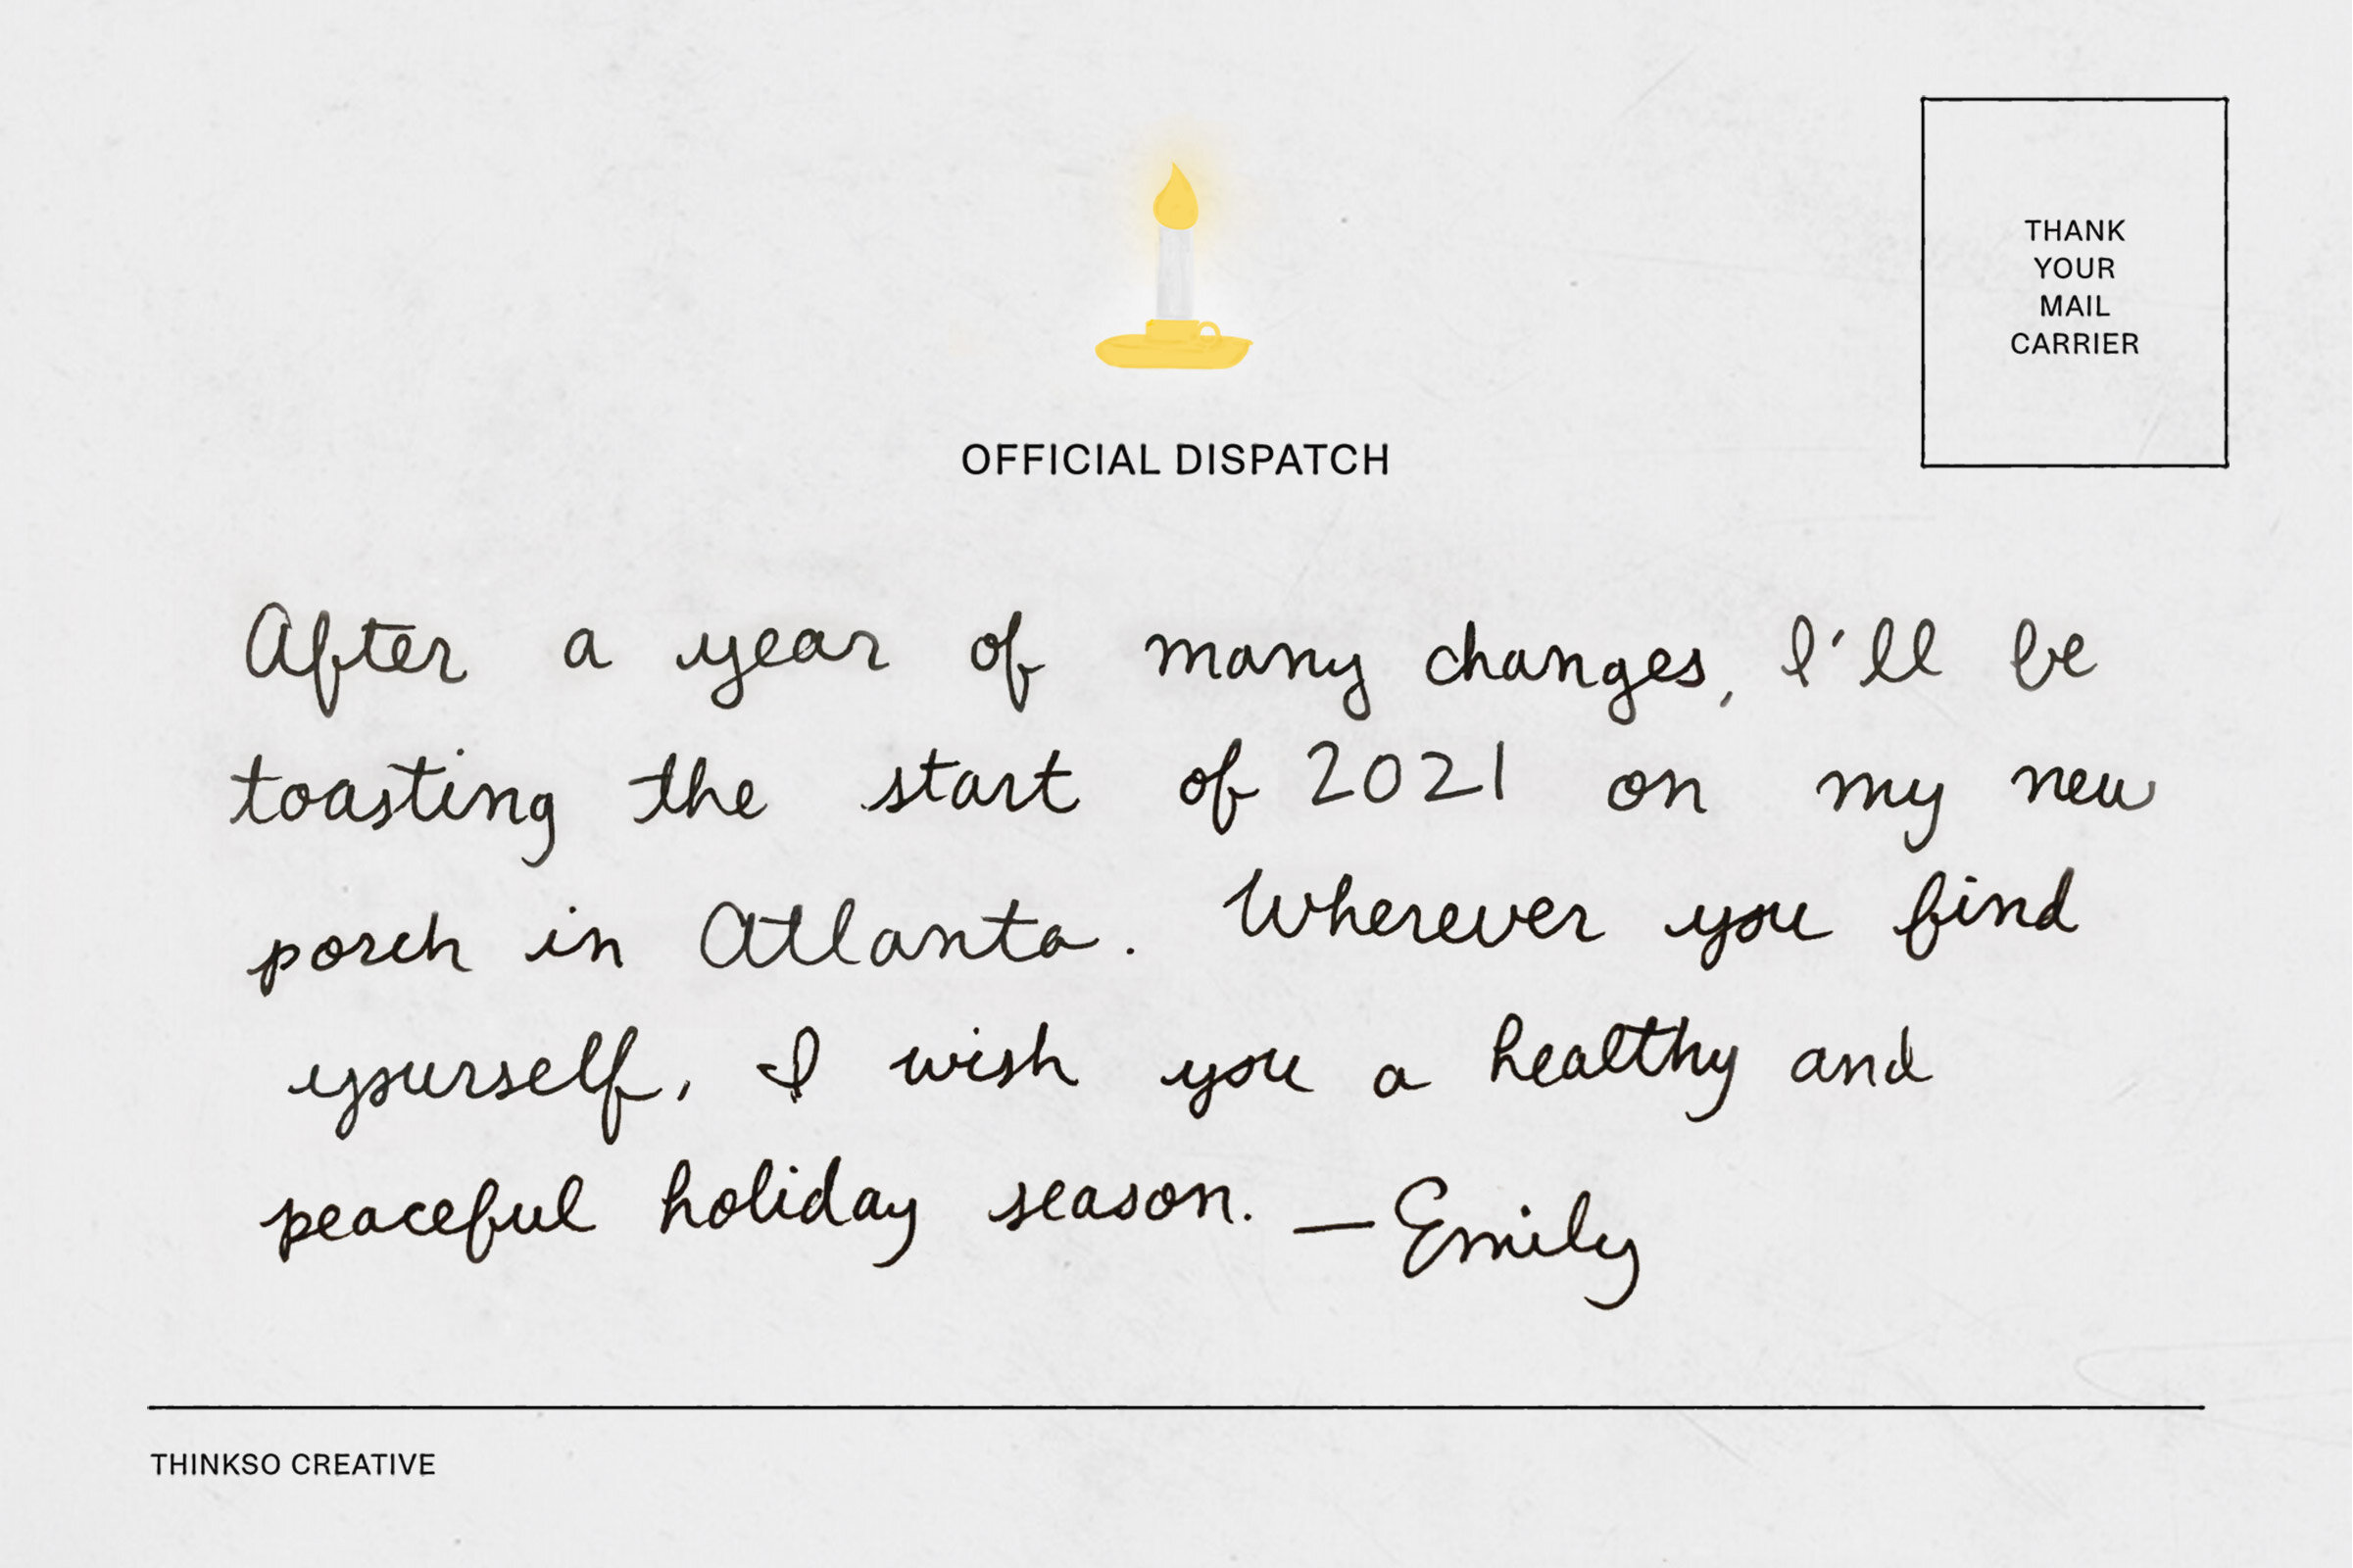 THANK
YOUR
MAIL
CARRIER
OFFICIAL DISPATCH
After a year of many changes, I'll be
toasting the start of 2021 on my new
porch in Atlanta. Wherever you find
yourself, I wish you a healthy and
peaceful holiday season. —Emily
THINKSO CREATIVE